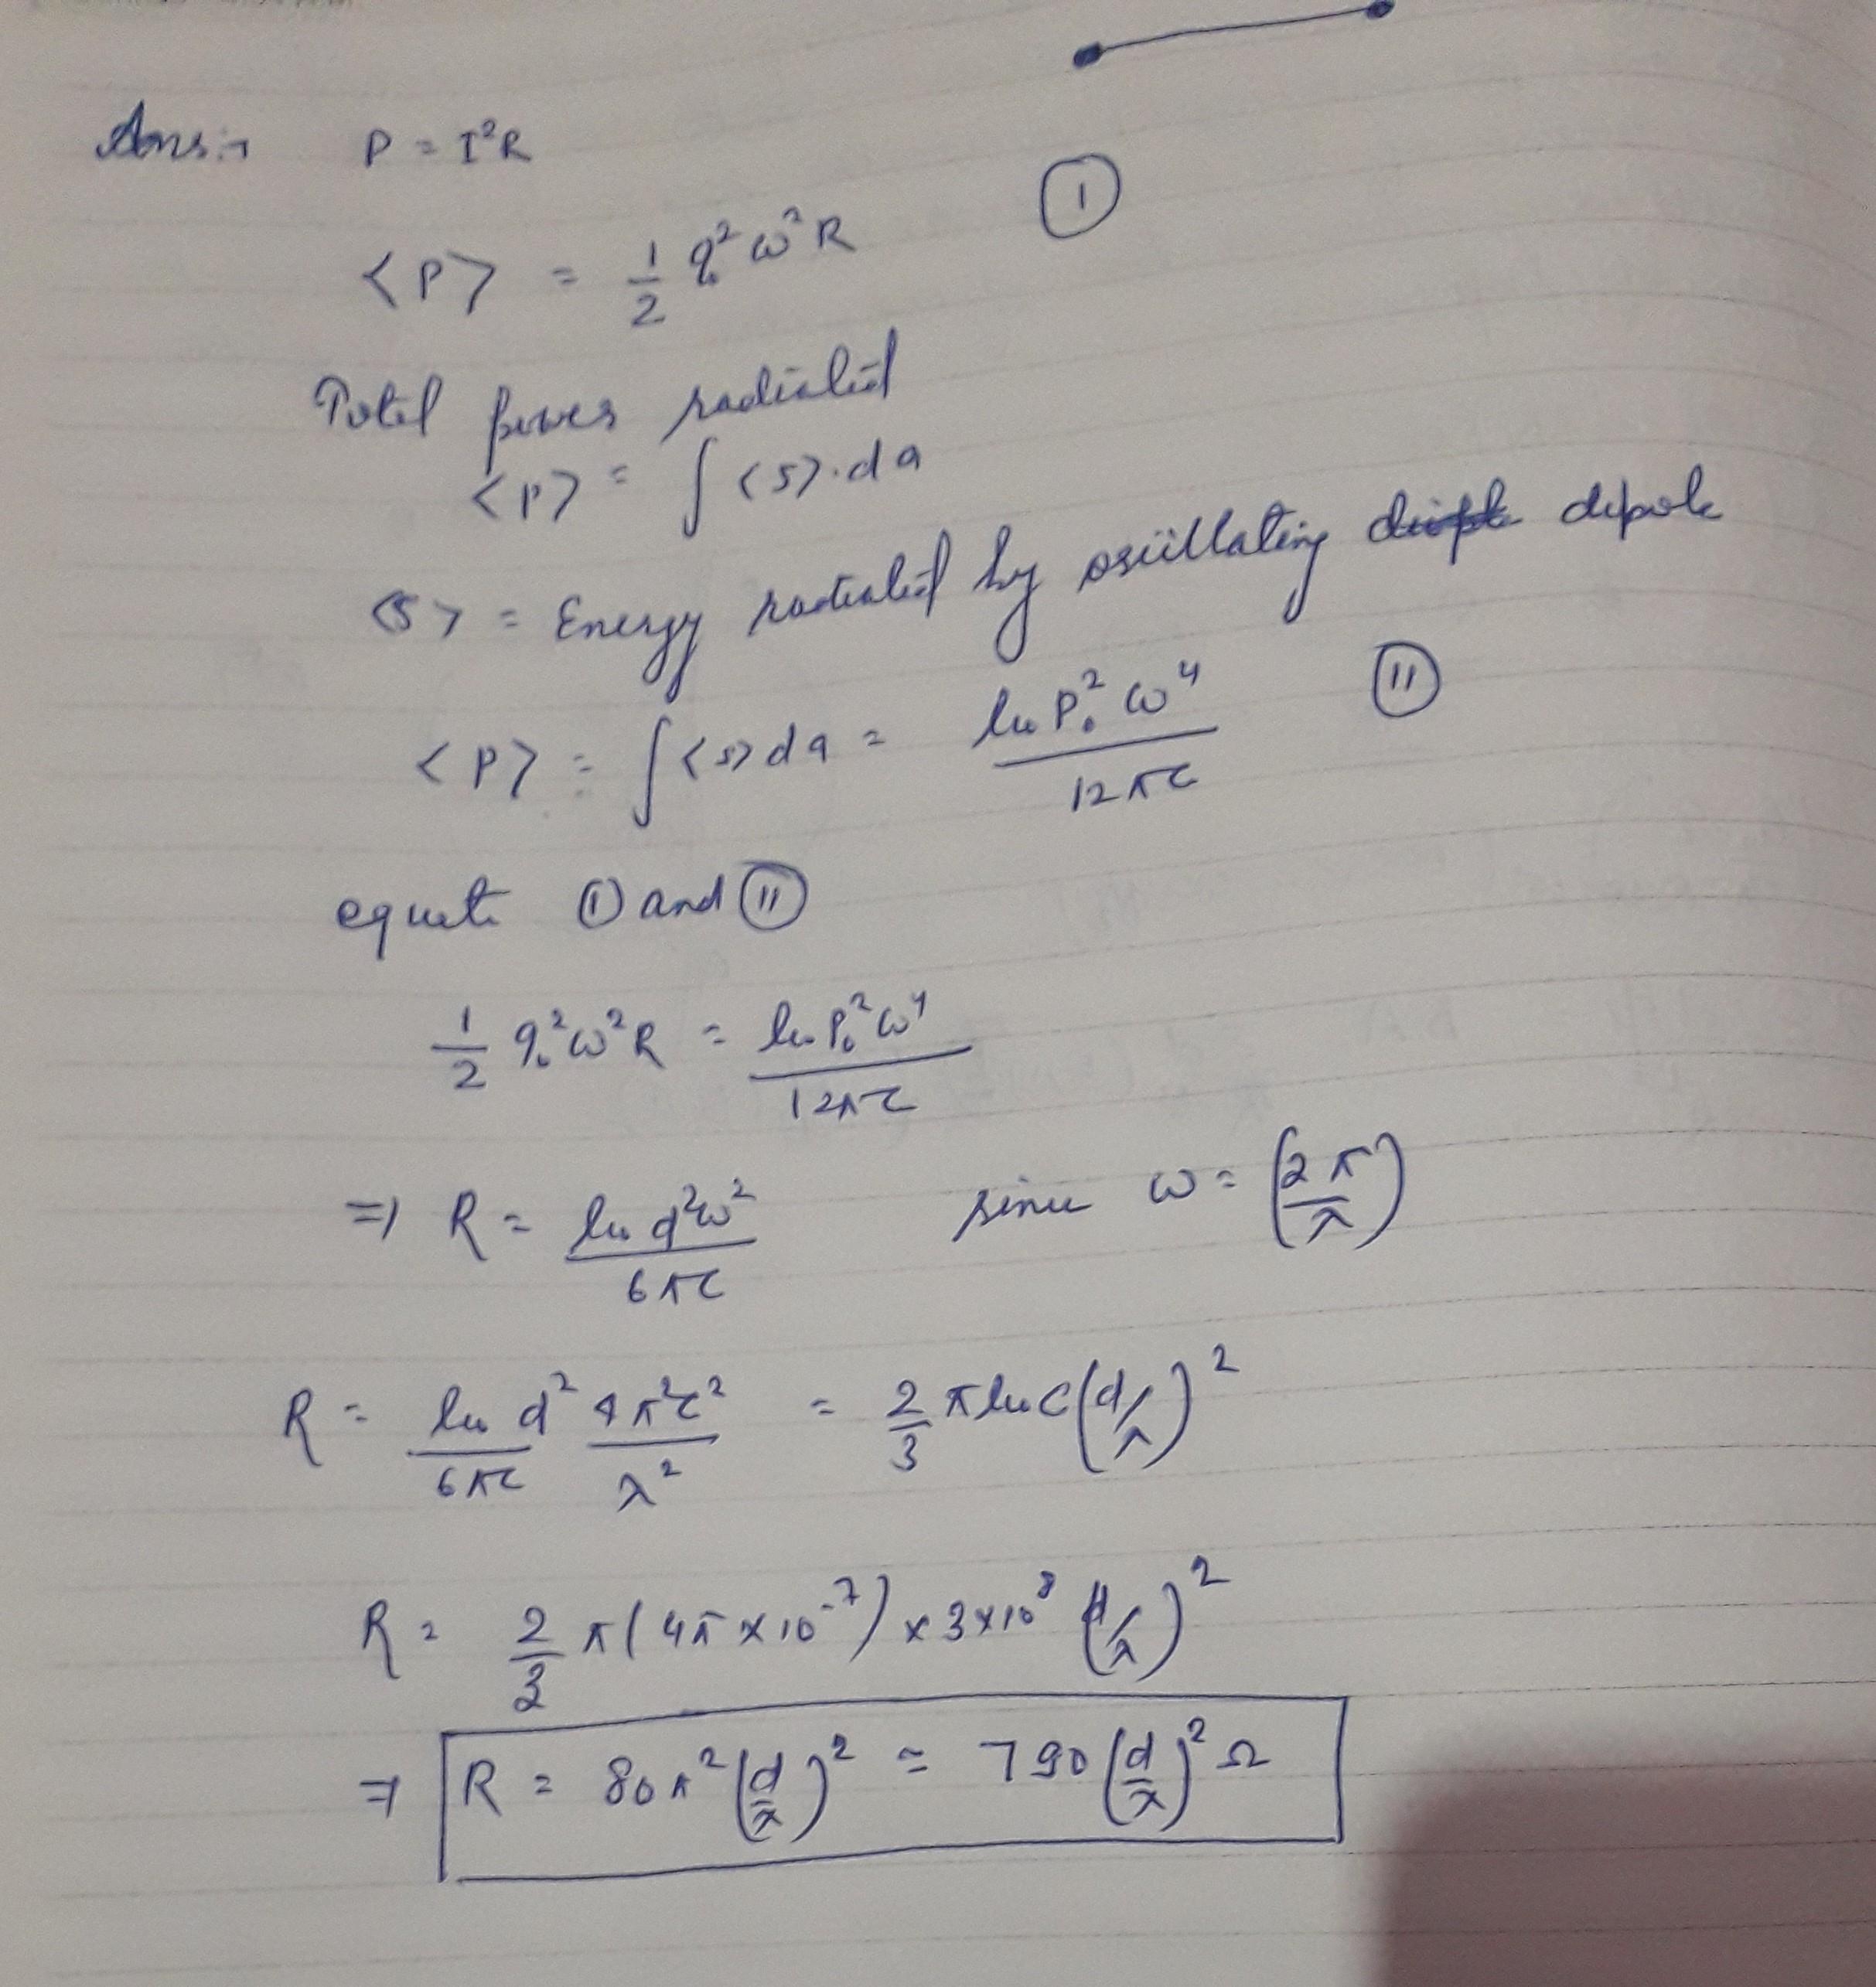 Ans:→ P = I²R
<P> = 1/2 q₀² ω² R (I)
Total power radiated
<P> = ∫ <S>.da
<S> = Energy radiated by oscillating dipole
<P> = ∫ <S> da = μ₀ P₀² ω⁴ / 12πc (II)
equate (I) and (II)
1/2 q₀² ω² R = μ₀ P₀² ω⁴ / 12πc
⇒ R = μ₀ d² ω² / 6πc since ω = (2π/λ)
R = μ₀ d² / 6πc 4π²c² / λ² = 2/3 π μ₀ c (d/λ)²
R = 2/3 π (4π × 10⁻⁷) × 3 × 10⁸ (d/λ)²
⇒ R = 80π² (d/λ)² = 790 (d/λ)² Ω